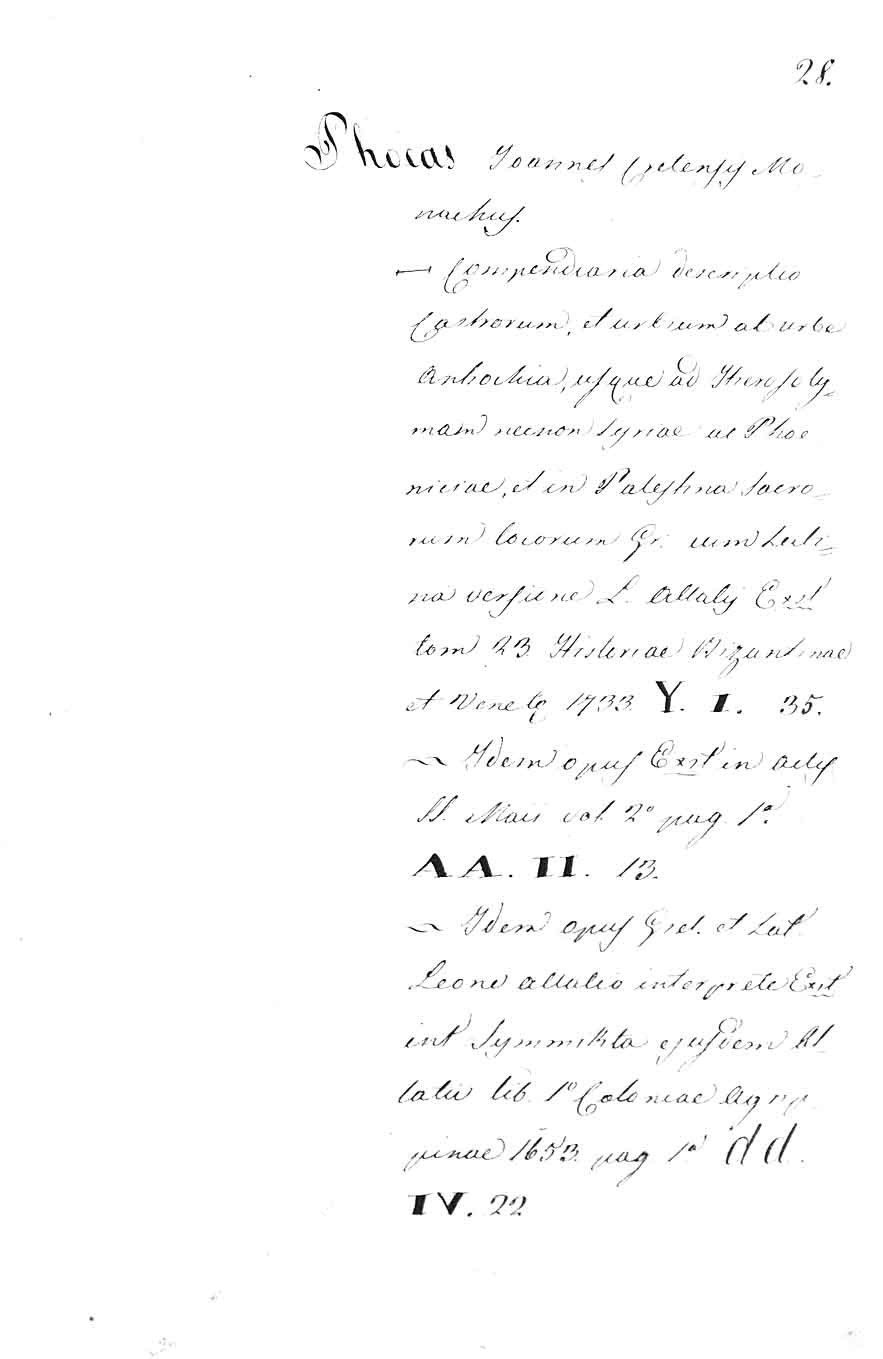 28.
Phocas Joannes Cretensis Mo-
nachus.
— Compendiaria descriptio
Castrorum, et urbium ab urbe
Antiochia, usque ad Hierosoly-
mam necnon Syriae ac Phoe
niciae, et in Palestina Sacro-
rum locorum Gr. cum Lati-
na versione L. Allatij Exst
tom 23 Historiae Bizantinae
et Venetg 1733 Y. I. 35.
~ Idem opus Exst in Actis
SS. Maii vol. 2º pag. 1ª.
AA. II. 13.
~ Idem opus Gret. et Lat.
Leone Allatio interprete Exst
int Symmikta ejusdem Al-
latii lib. 1º Coloniae Agrip
pinae 1653. pag 1ª dd.
IV. 22